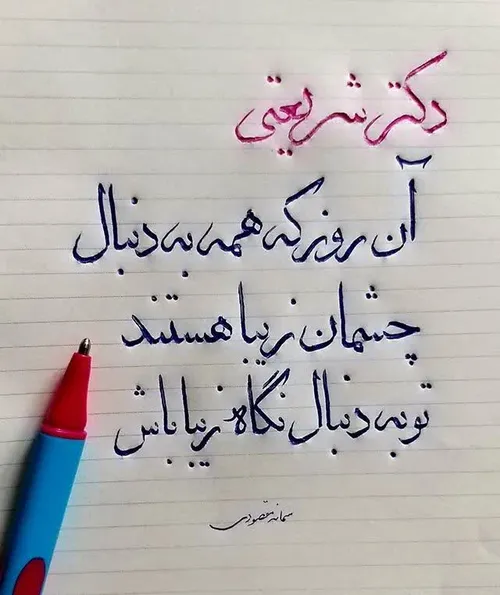 دکتر شریعتی
آن روز که همه به دنبال
چشمان زیبا هستند
تو به دنبال نگاه زیبا باش
سمانه مقصودی